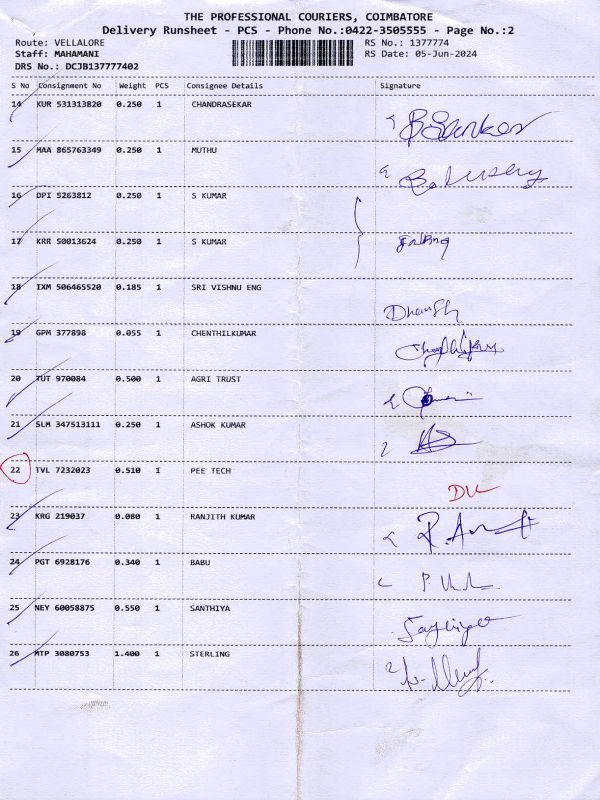 THE PROFESSIONAL COURIERS, COIMBATORE
Delivery Runsheet - PCS - Phone No.:0422-3505555 - Page No.:2
Route: VELLALORE RS No.: 1377774
Staff: MAHAMANI RS Date: 05-Jun-2024
DRS No.: DCJB137777402
S No Consignment No Weight PCS Consignee Details Signature
14 KUR 531313820 0.250 1 CHANDRASEKAR
15 MAA 865763349 0.250 1 MUTHU
16 DPI 5263812 0.250 1 S KUMAR
17 KRR 50013624 0.250 1 S KUMAR
18 IXM 506465520 0.185 1 SRI VISHNU ENG
19 GPM 377898 0.055 1 CHENTHILKUMAR
20 TUT 970084 0.500 1 AGRI TRUST
21 SLM 347513111 0.250 1 ASHOK KUMAR
22 TVL 7232023 0.510 1 PEE TECH
23 KRG 219037 0.080 1 RANJITH KUMAR
24 PGT 6928176 0.340 1 BABU
25 NEY 60058875 0.550 1 SANTHIYA
26 MTP 3080753 1.400 1 STERLING